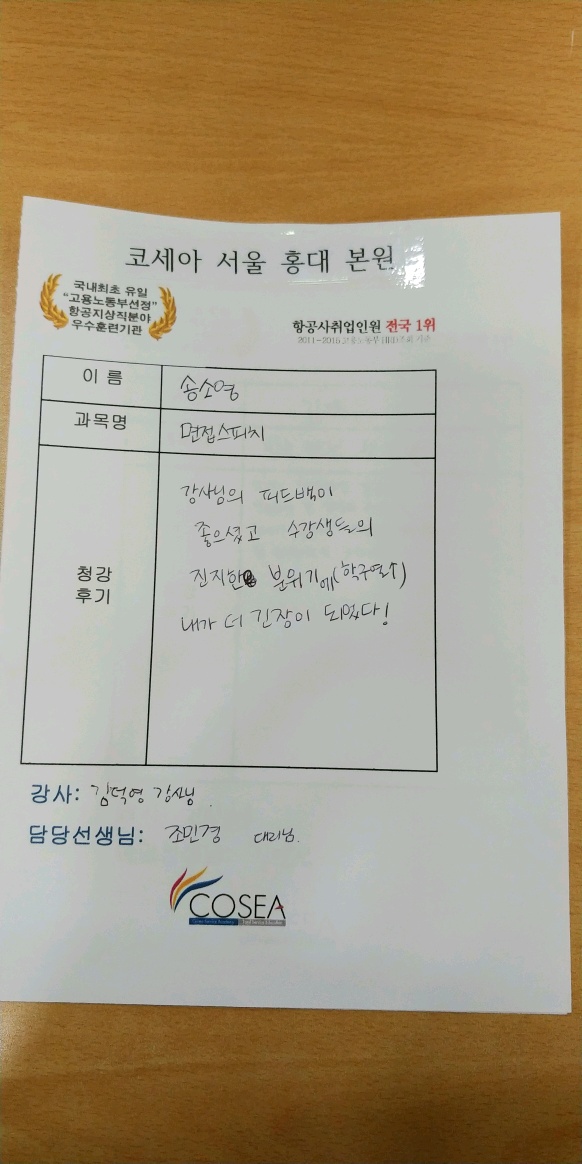 코세아 서울 홍대 본원
국내최초 유일
"고용노동부선정"
항공지상직분야
우수훈련기관
항공사취업인원 전국 1위
2011~2015 고용노동부 HRD조회 기준
이 름
송소영
과목명
면접스피치
청강
후기
강사님의 피드백이
좋으셨고 수강생들의
진지한 분위기에(학구열↑)
내가 더 긴장이 되었다!
강사: 김덕영 강사님
담당선생님: 조민경 대리님.
COSEA